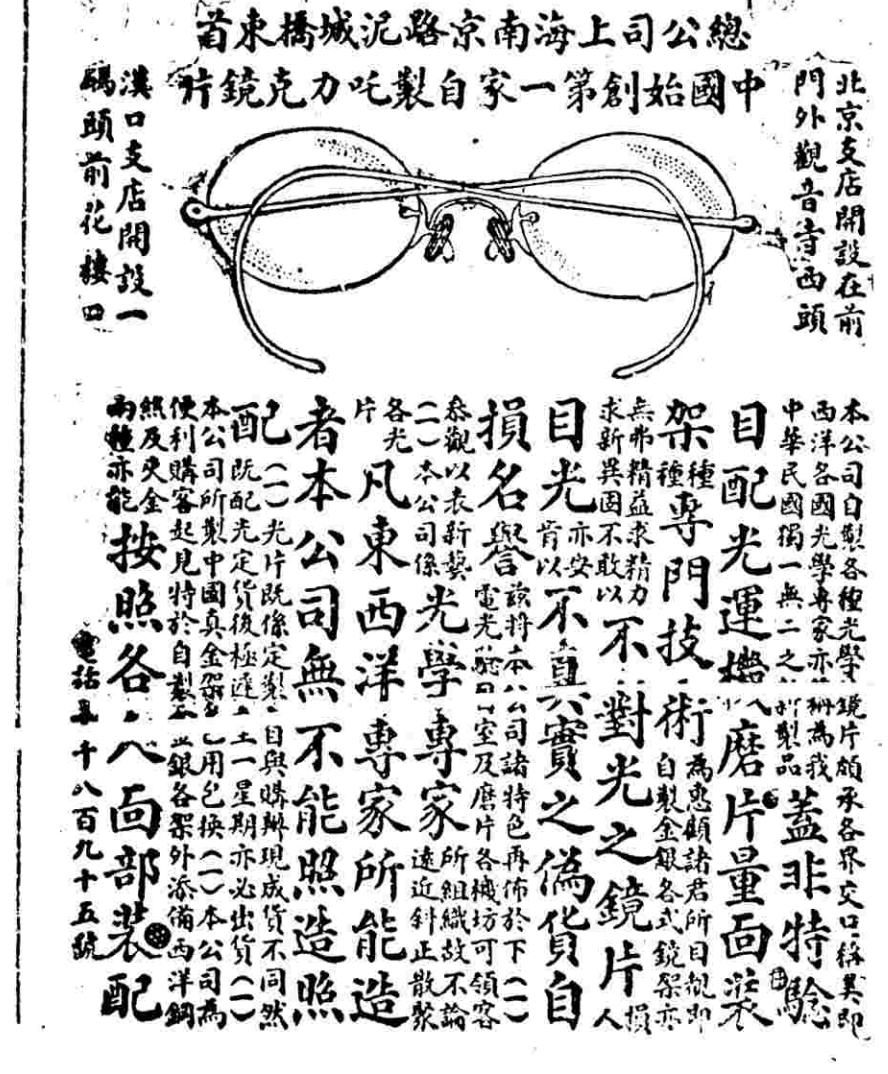 總公司上海南京路泥城橋東首
中國始創第一家自製吒力克鏡片
北京支店開設在前
門外觀音寺西頭
漢口支店開設一
碼頭前花樓口
本公司自製各種光學鏡片頗承各界交口稱異即
西洋各國光學專家亦稱為我
中華民國獨一無二之新製品
蓋非特驗
目配光運機磨片量面裝
架種種專門技術為惠顧諸君所目覩即
自製金銀各式鏡架亦
無弗精益求精力
求新異因不敢以
不對光之鏡片人損
目光亦安肯以不真實之偽貨自
損名譽茲將本公司諸特色再佈於下(一)
電光驗目室及磨片各機坊可領客
參觀以表新藝
(二)本公司係
光學專家所組織故不論
遠近斜正散聚
各光片凡東西洋專家所能造
者本公司無不能照造照
配(一)光片既係定製自與購辦現成貨不同然
既配光定貨後極速一星期亦必出貨(一)
本公司所製中國真金架用包換(一)本公司為
便利購客起見特於自製金銀各架外添備西洋鋼
絲及夾金
兩種亦能
按照各人面部裝配
電話千八百九十五號